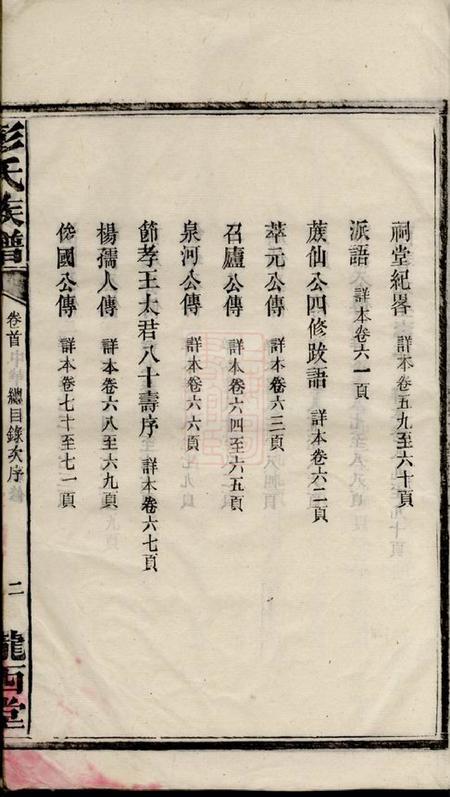 祠堂紀畧 詳本卷五九至六十頁
派語 詳本卷六一頁
蔟仙公四修跋語 詳本卷六二頁
萃元公傳 詳本卷六三頁
召廬公傳 詳本卷六四至六五頁
泉河公傳 詳本卷六六頁
節孝王太君八十壽序 詳本卷六七頁
楊孺人傳 詳本卷六八至六九頁
俊國公傳 詳本卷七十至七一頁
彭氏族譜 卷首 總目錄次序 二 隴西堂